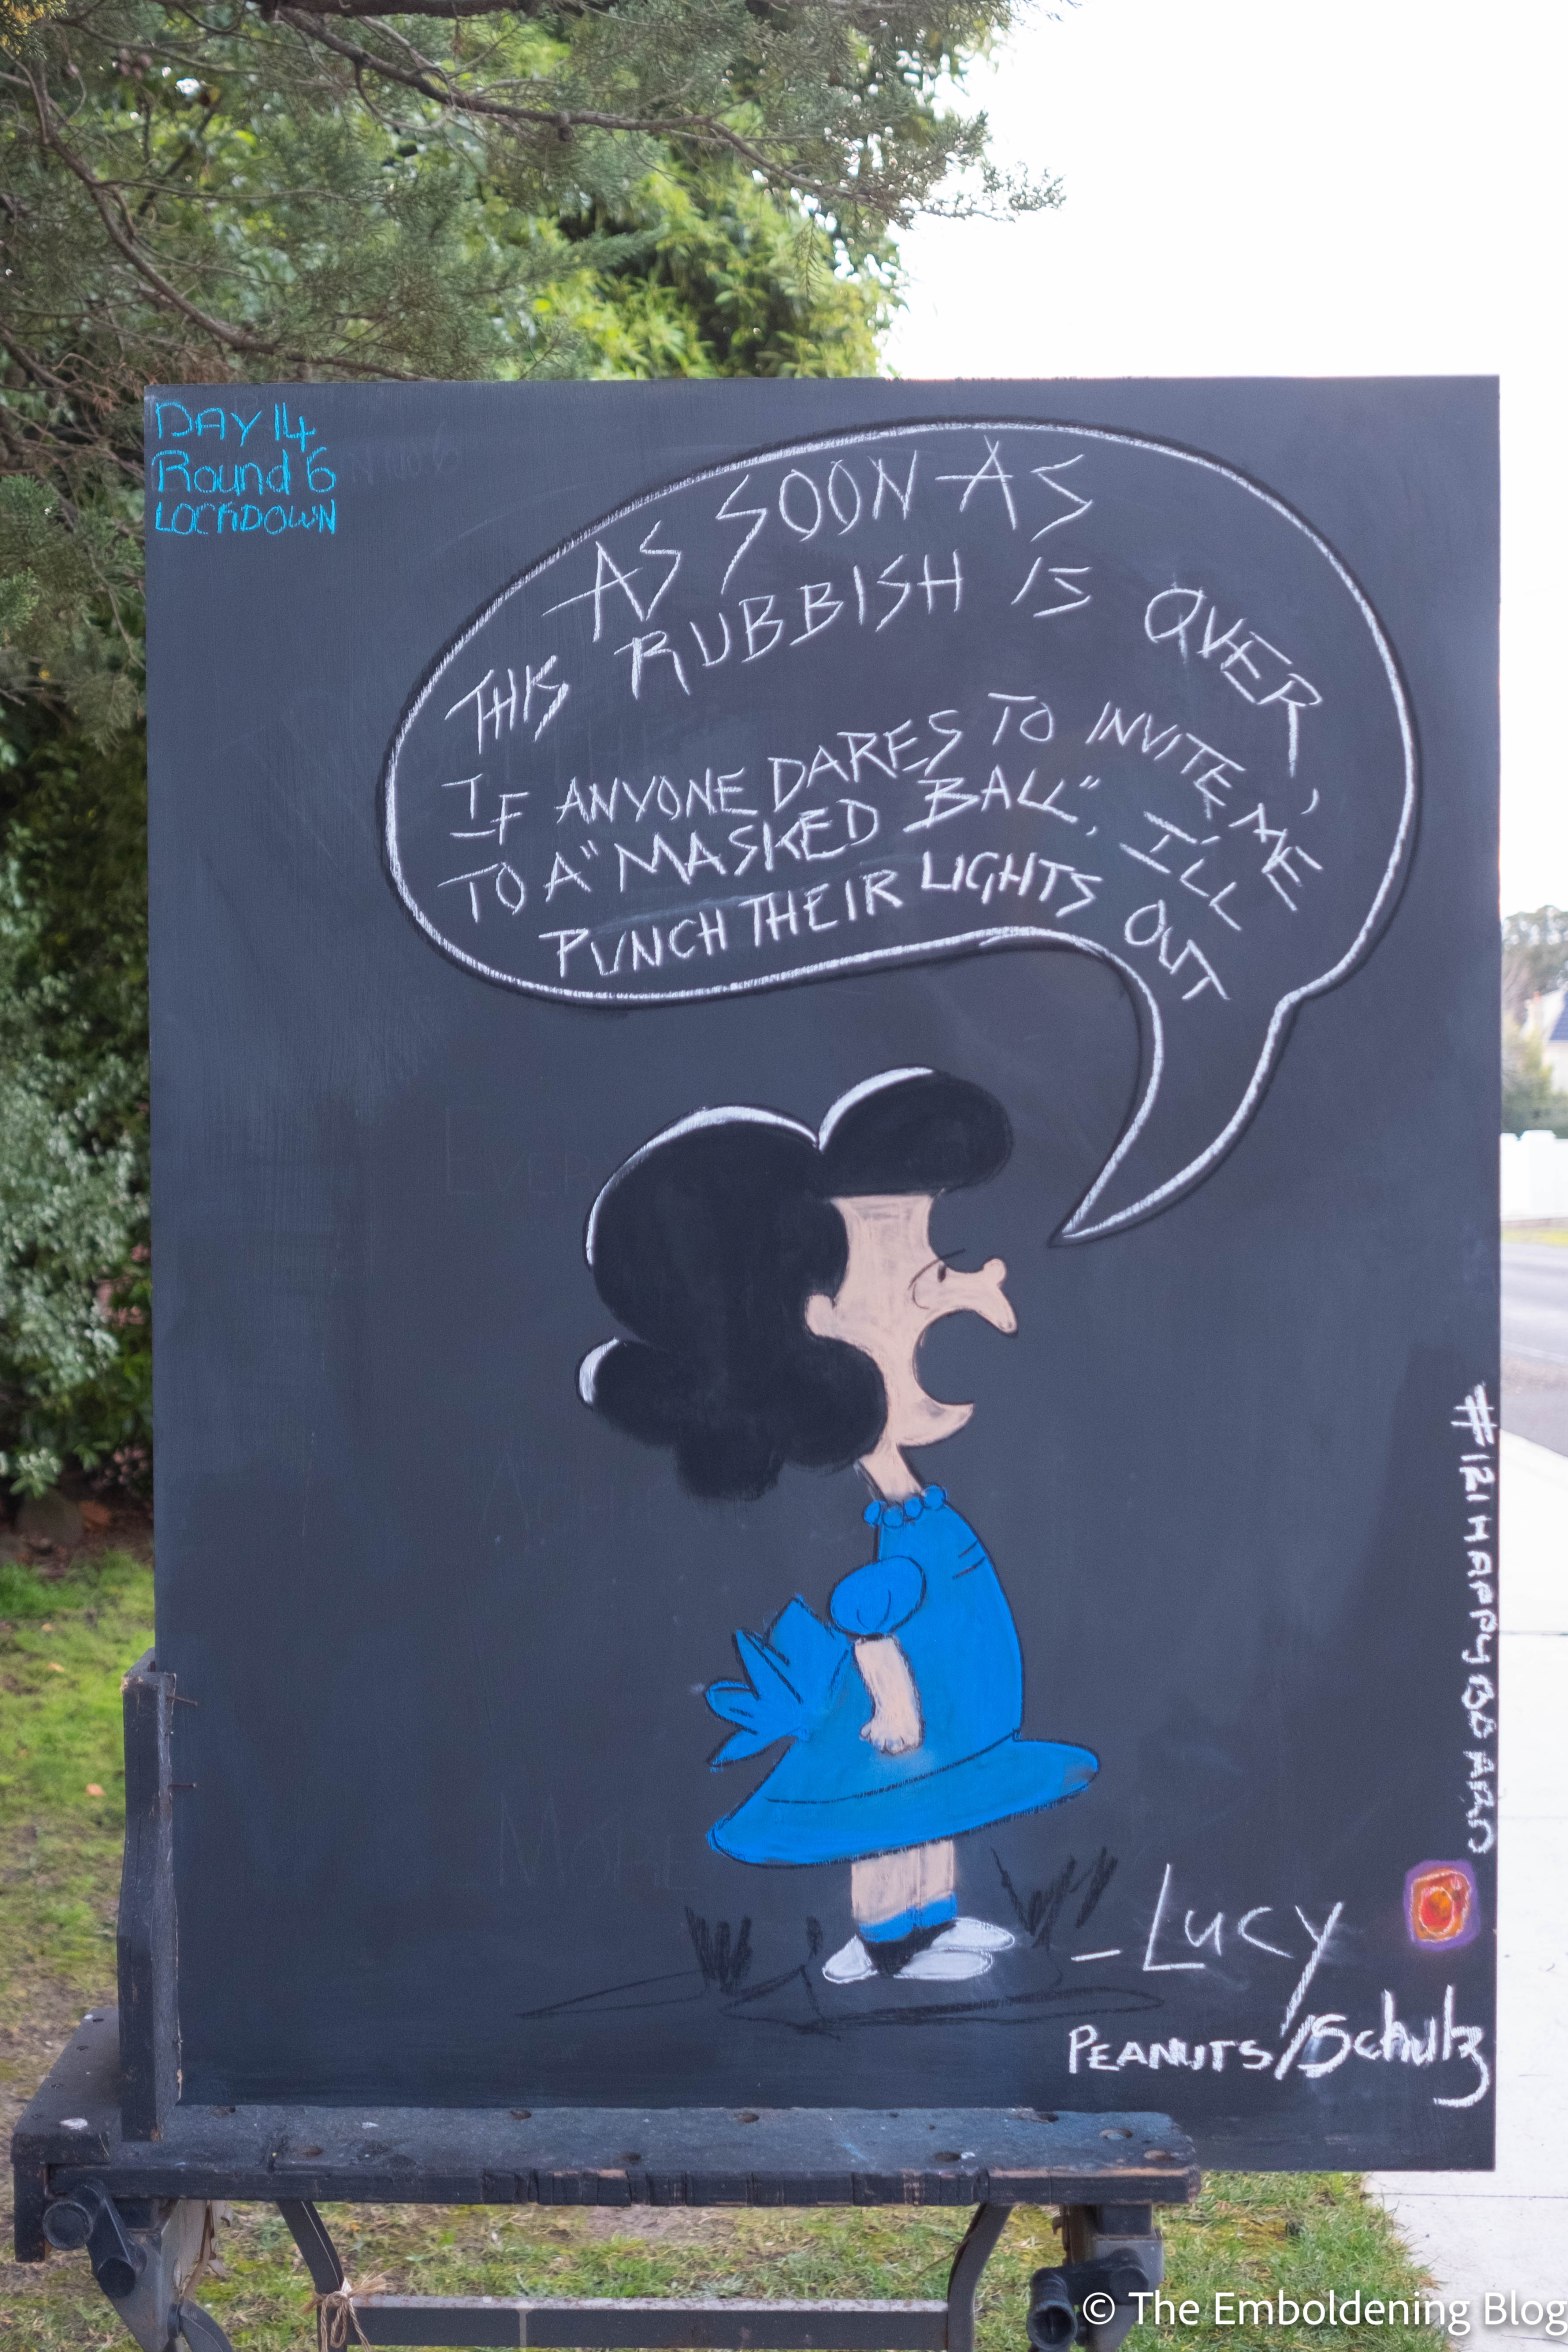 DAY 14
Round 6
LOCKDOWN
AS SOON AS
THIS RUBBISH IS OVER,
IF ANYONE DARES TO INVITE ME
TO A "MASKED BALL", I'LL
PUNCH THEIR LIGHTS OUT
#121HAPPYBOARD
- Lucy
PEANUTS/Schulz
© The Emboldening Blog